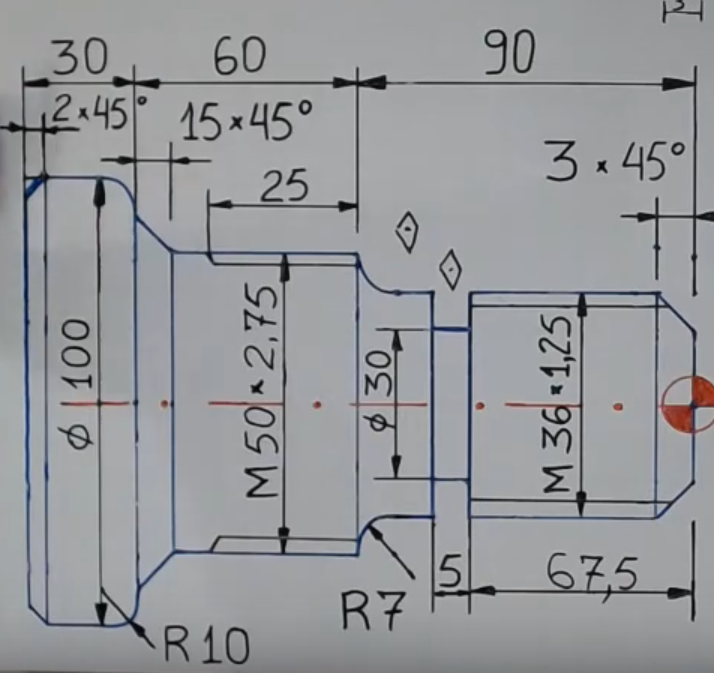 30 60 90
2×45° 15×45°
3 × 45°
25
ϕ 100
M 50 × 2,75
ϕ 30
M 36 × 1,25
5 67,5
R7
R10